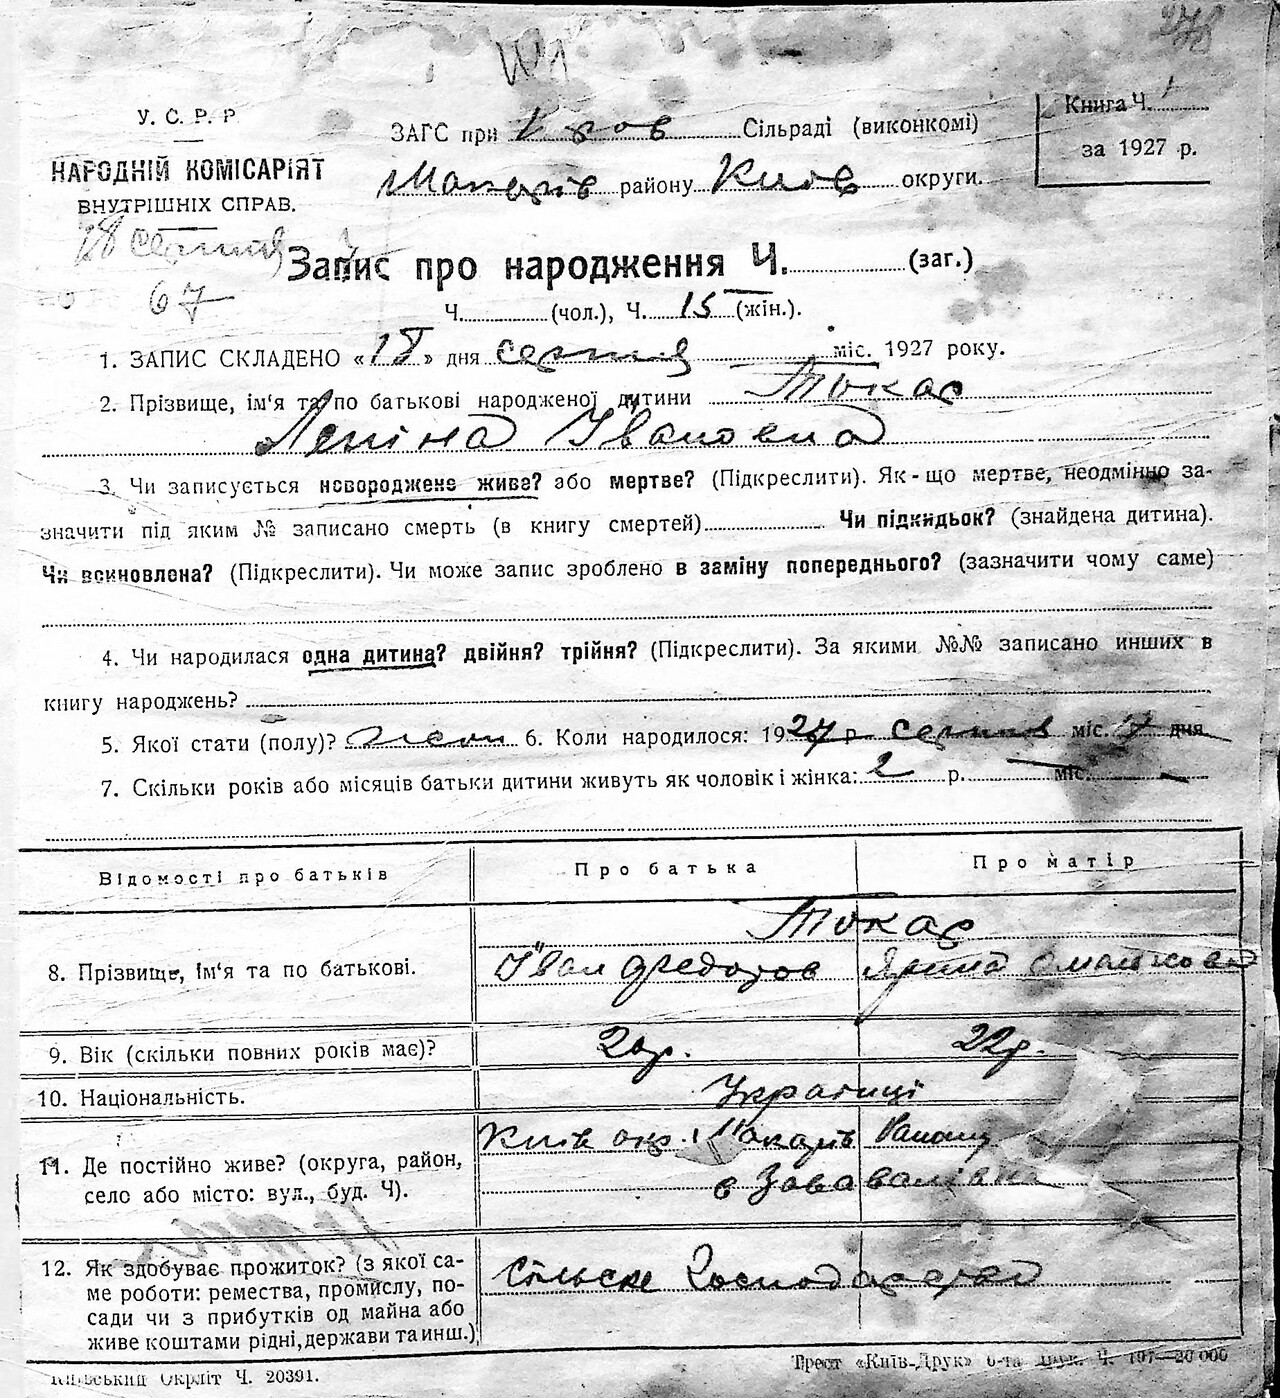 278
У. С. Р. Р
НАРОДНІЙ КОМІСАРІЯТ
ВНУТРІШНІХ СПРАВ.
ЗАГС при Сільраді (виконкомі)
Макарів району Київ округи.
Книга Ч. 1
за 1927 р.
18 серпня
67
Запис про народження Ч. (заг.)
Ч. (чол.), Ч. 15 (жін.).
1. ЗАПИС СКЛАДЕНО «18» дня серпня міс. 1927 року.
2. Прізвище, ім'я та по батькові народженої дитини Токар
Леніна Івановна
3. Чи записується новороджене живе? або мертве? (Підкреслити). Як-що мертве, неодмінно за-
значити під яким № записано смерть (в книгу смертей) Чи підкидьок? (знайдена дитина).
Чи всиновлена? (Підкреслити). Чи може запис зроблено в заміну попереднього? (зазначити чому саме)
4. Чи народилася одна дитина? двійня? трійня? (Підкреслити). За якими №№ записано инших в
книгу народжень?
5. Якої стати (полу)? жіноч 6. Коли народилося: 1927 р. серпня міс. 7 дня
7. Скільки років або місяців батьки дитини живуть як чоловік і жінка: 2 р. — міс. —
Відомості про батьків Про батька Про матір
Токар
8. Прізвище, ім'я та по батькові. Іван Федоров Ярина
9. Вік (скільки повних років має)? 20р. 22р.
10. Національність. Українці
Київ окр. Макарів Району
11. Де постійно живе? (округа, район,
село або місто: вул., буд. Ч).
12. Як здобуває прожиток? (з якої са-
ме роботи: ремества, промислу, по-
сади чи з прибутків од майна або
живе коштами рідні, держави та инш.)
Сільске Господарство
Київський Окрліт Ч. 20391.
Трест «Київ-Друк» 6-та друк. Ч. 197—20 000